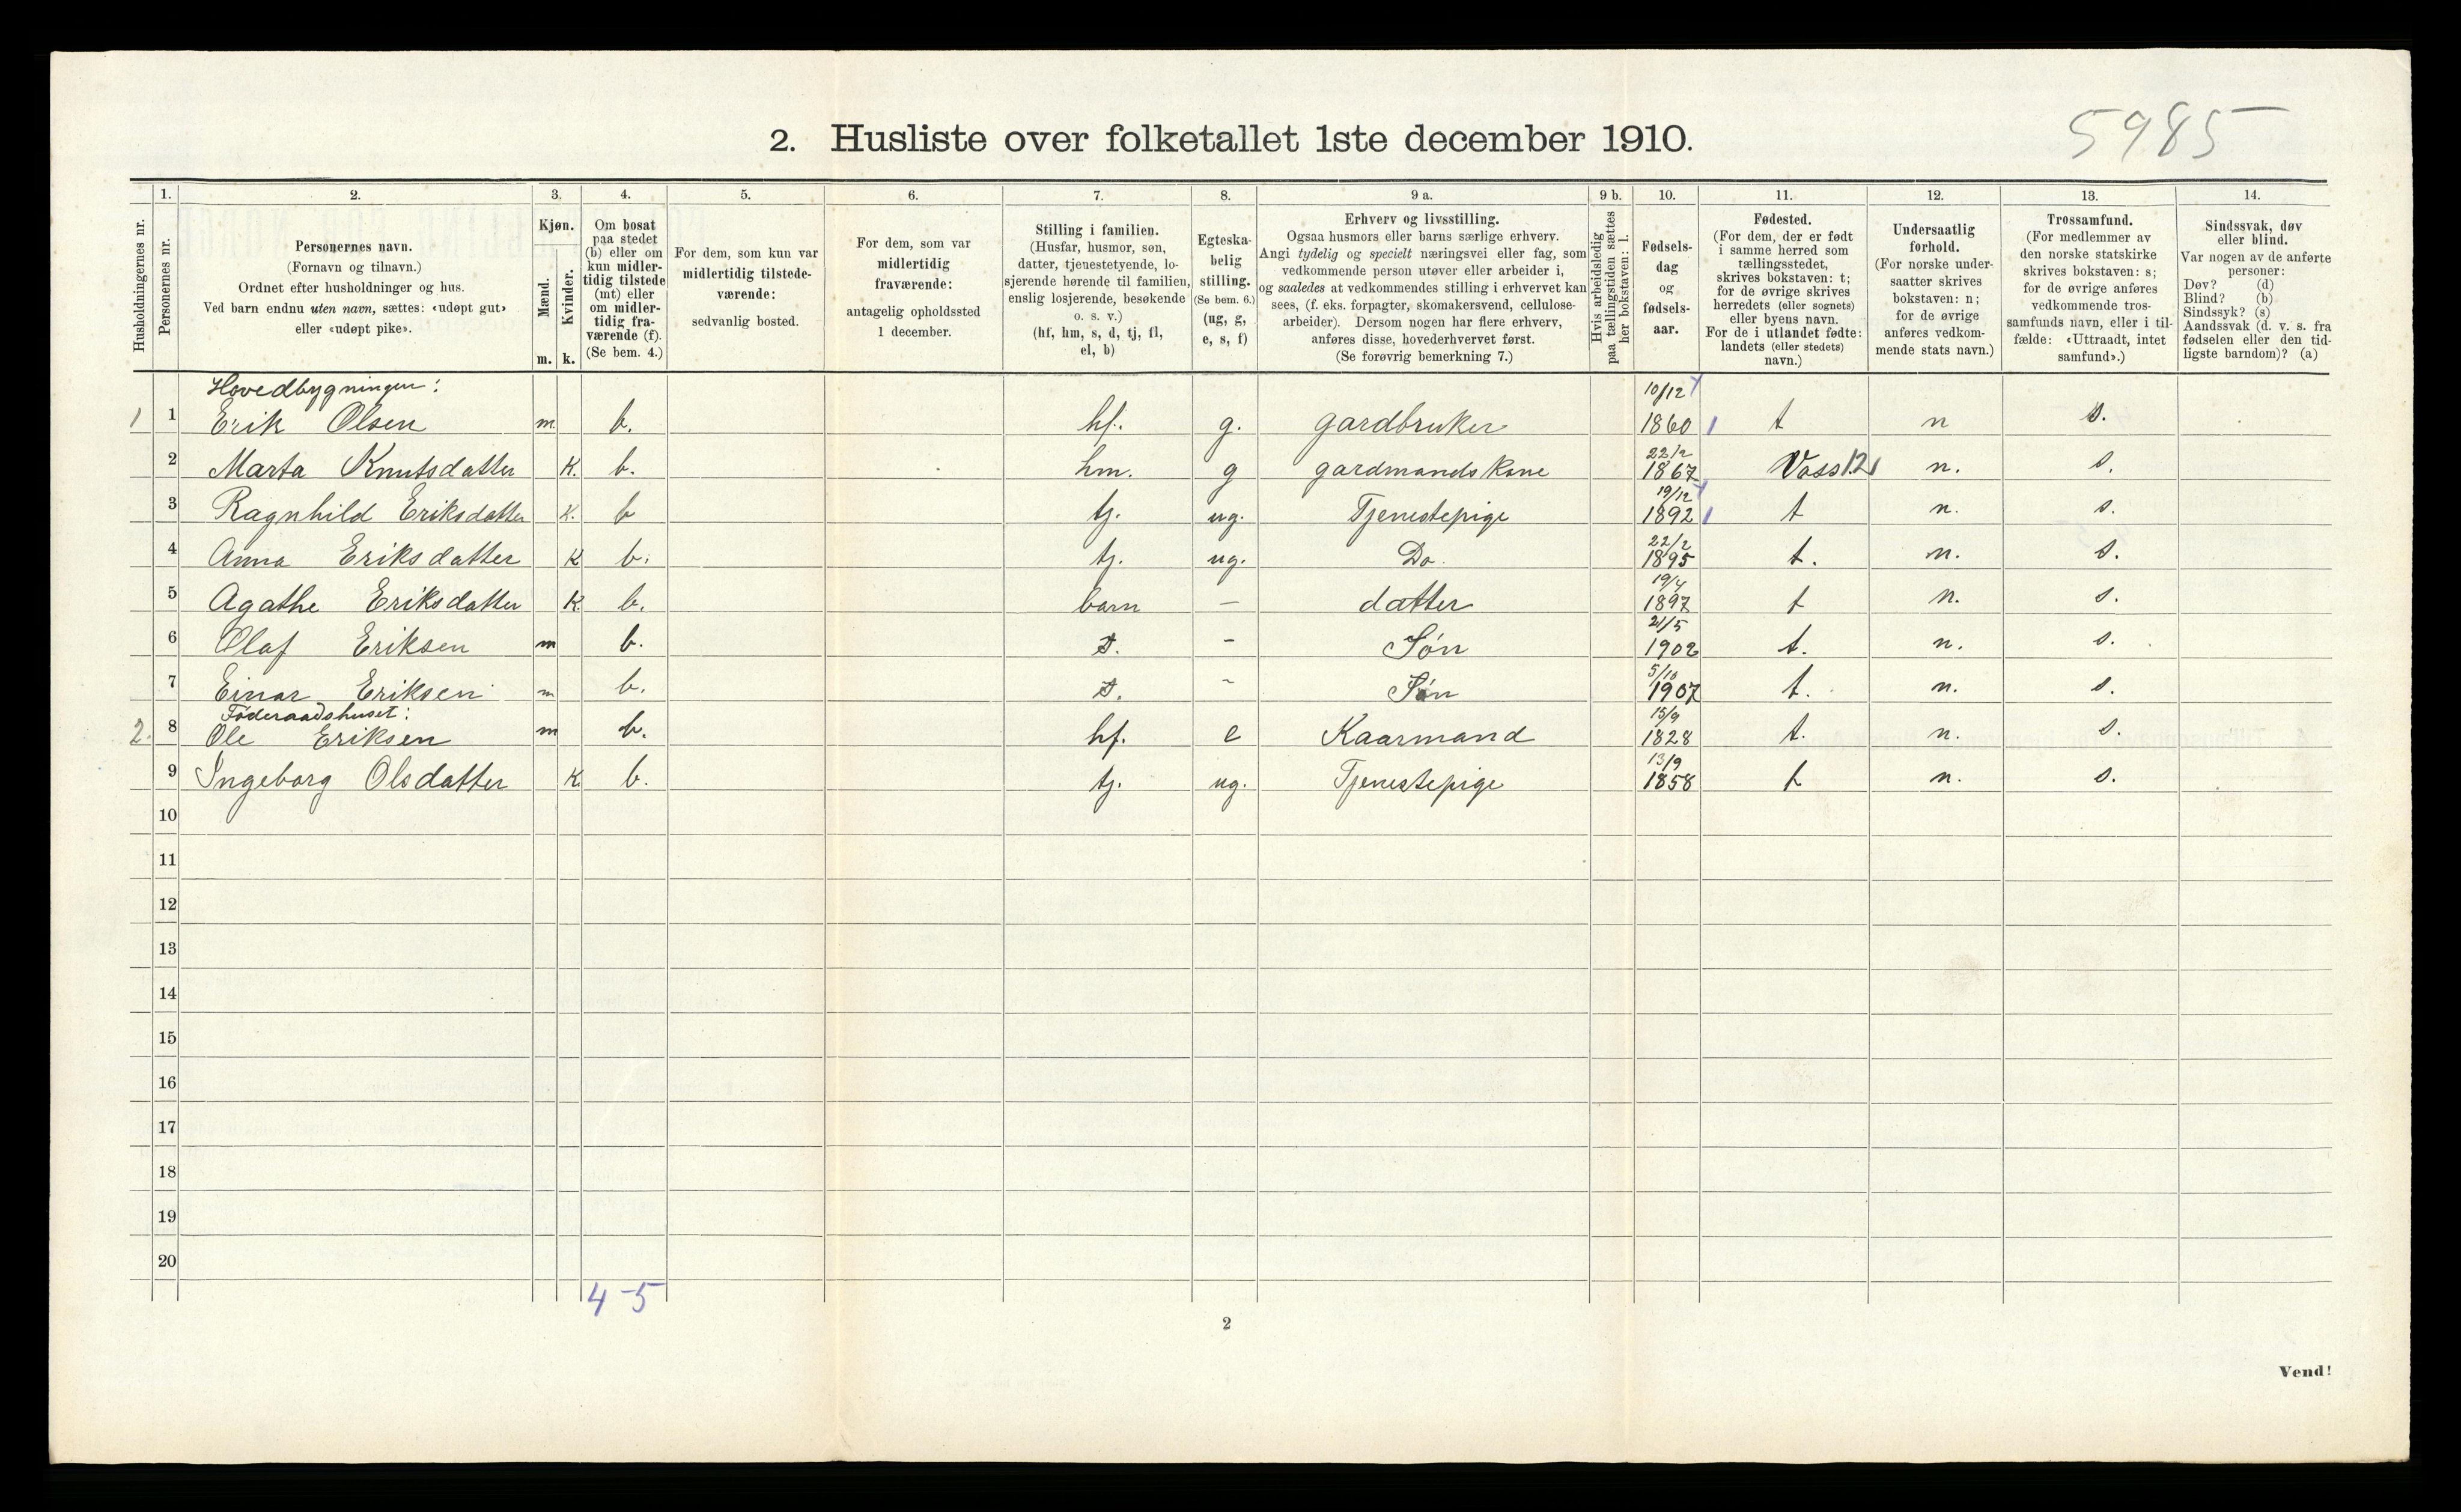 5985
2. Husliste over folketallet 1ste december 1910.
Husholdningernes nr.
1.
Personernes nr.
2.
Personernes navn.
(Fornavn og tilnavn.)
Ordnet efter husholdninger og hus.
Ved barn endnu uten navn, sættes: «udøpt gut»
eller «udøpt pike».
3.
Kjøn.
Mænd.
Kvinder.
m. k.
4.
Om bosat
paa stedet
(b) eller om
kun midler-
tidig tilstede
(mt) eller
om midler-
tidig fra-
værende (f).
(Se bem. 4.)
5.
For dem, som kun var
midlertidig tilstede-
værende:
sedvanlig bosted.
6.
For dem, som var
midlertidig
fraværende:
antagelig opholdssted
1 december.
7.
Stilling i familien.
(Husfar, husmor, søn,
datter, tjenestetyende, lo-
sjerende hørende til familien,
enslig losjerende, besøkende
o. s. v.)
(hf, hm, s, d, tj, fl,
el, b)
8.
Egteska-
belig
stilling.
(Se bem. 6.)
(ug, g,
e, s, f)
9 a.
Erhverv og livsstilling.
Ogsaa husmors eller barns særlige erhverv.
Angi tydelig og specielt næringsvei eller fag, som
vedkommende person utøver eller arbeider i,
og saaledes at vedkommendes stilling i erhvervet kan
sees, (f. eks. forpagter, skomakersvend, cellulose-
arbeider). Dersom nogen har flere erhverv,
anføres disse, hovederhvervet først.
(Se forøvrig bemerkning 7.)
9 b.
Hvis arbeidsledig
paa tællingstiden sættes
her bokstaven: l.
10.
Fødsels-
dag
og
fødsels-
aar.
11.
Fødested.
(For dem, der er født
i samme herred som
tællingsstedet,
skrives bokstaven: t;
for de øvrige skrives
herredets (eller sognets)
eller byens navn.
For de i utlandet fødte:
landets (eller stedets)
navn.)
12.
Undersaatlig
forhold.
(For norske under-
saatter skrives
bokstaven: n;
for de øvrige
anføres vedkom-
mende stats navn.)
13.
Trossamfund.
(For medlemmer av
den norske statskirke
skrives bokstaven: s;
for de øvrige anføres
vedkommende tros-
samfunds navn, eller i til-
fælde: «Uttraadt, intet
samfund».)
14.
Sindssvak, døv
eller blind.
Var nogen av de anførte
personer:
Døv? (d)
Blind? (b)
Sindssyk? (s)
Aandssvak (d. v. s. fra
fødselen eller den tid-
ligste barndom)? (a)
Hovedbygningen:
1 1 Erik Olsen m b. hf. g. gardbruker 10/12 1860 t n s.
2 Marta Knutsdatter K. b. hm. g gardmandskone 22/2 1867 Voss 12 n. s.
3 Ragnhild Eriksdatter K. b tj. ug. Tjenestepige 19/12 1892 t n. s.
4 Anna Eriksdatter K b. tj. ug. Do. 22/2 1895 t. n. s.
5 Agathe Eriksdatter K b. barn — datter 19/4 1897 t n. s.
6 Olaf Eriksen m b. s. - Søn 21/5 1902 t. n. s.
7 Einar Eriksen m b. s. - Søn 5/10 1907 t. n. s.
Föderaadshuset:
2. 8 Ole Eriksen m b. hf. e Kaarmand 15/9 1828 t. n. s.
9 Ingeborg Olsdatter K b. tj. ug. Tjenestepige 13/9 1858 t n. s.
10
11
12
13
14
15
16
17
18
19
20
4-5
2
Vend!